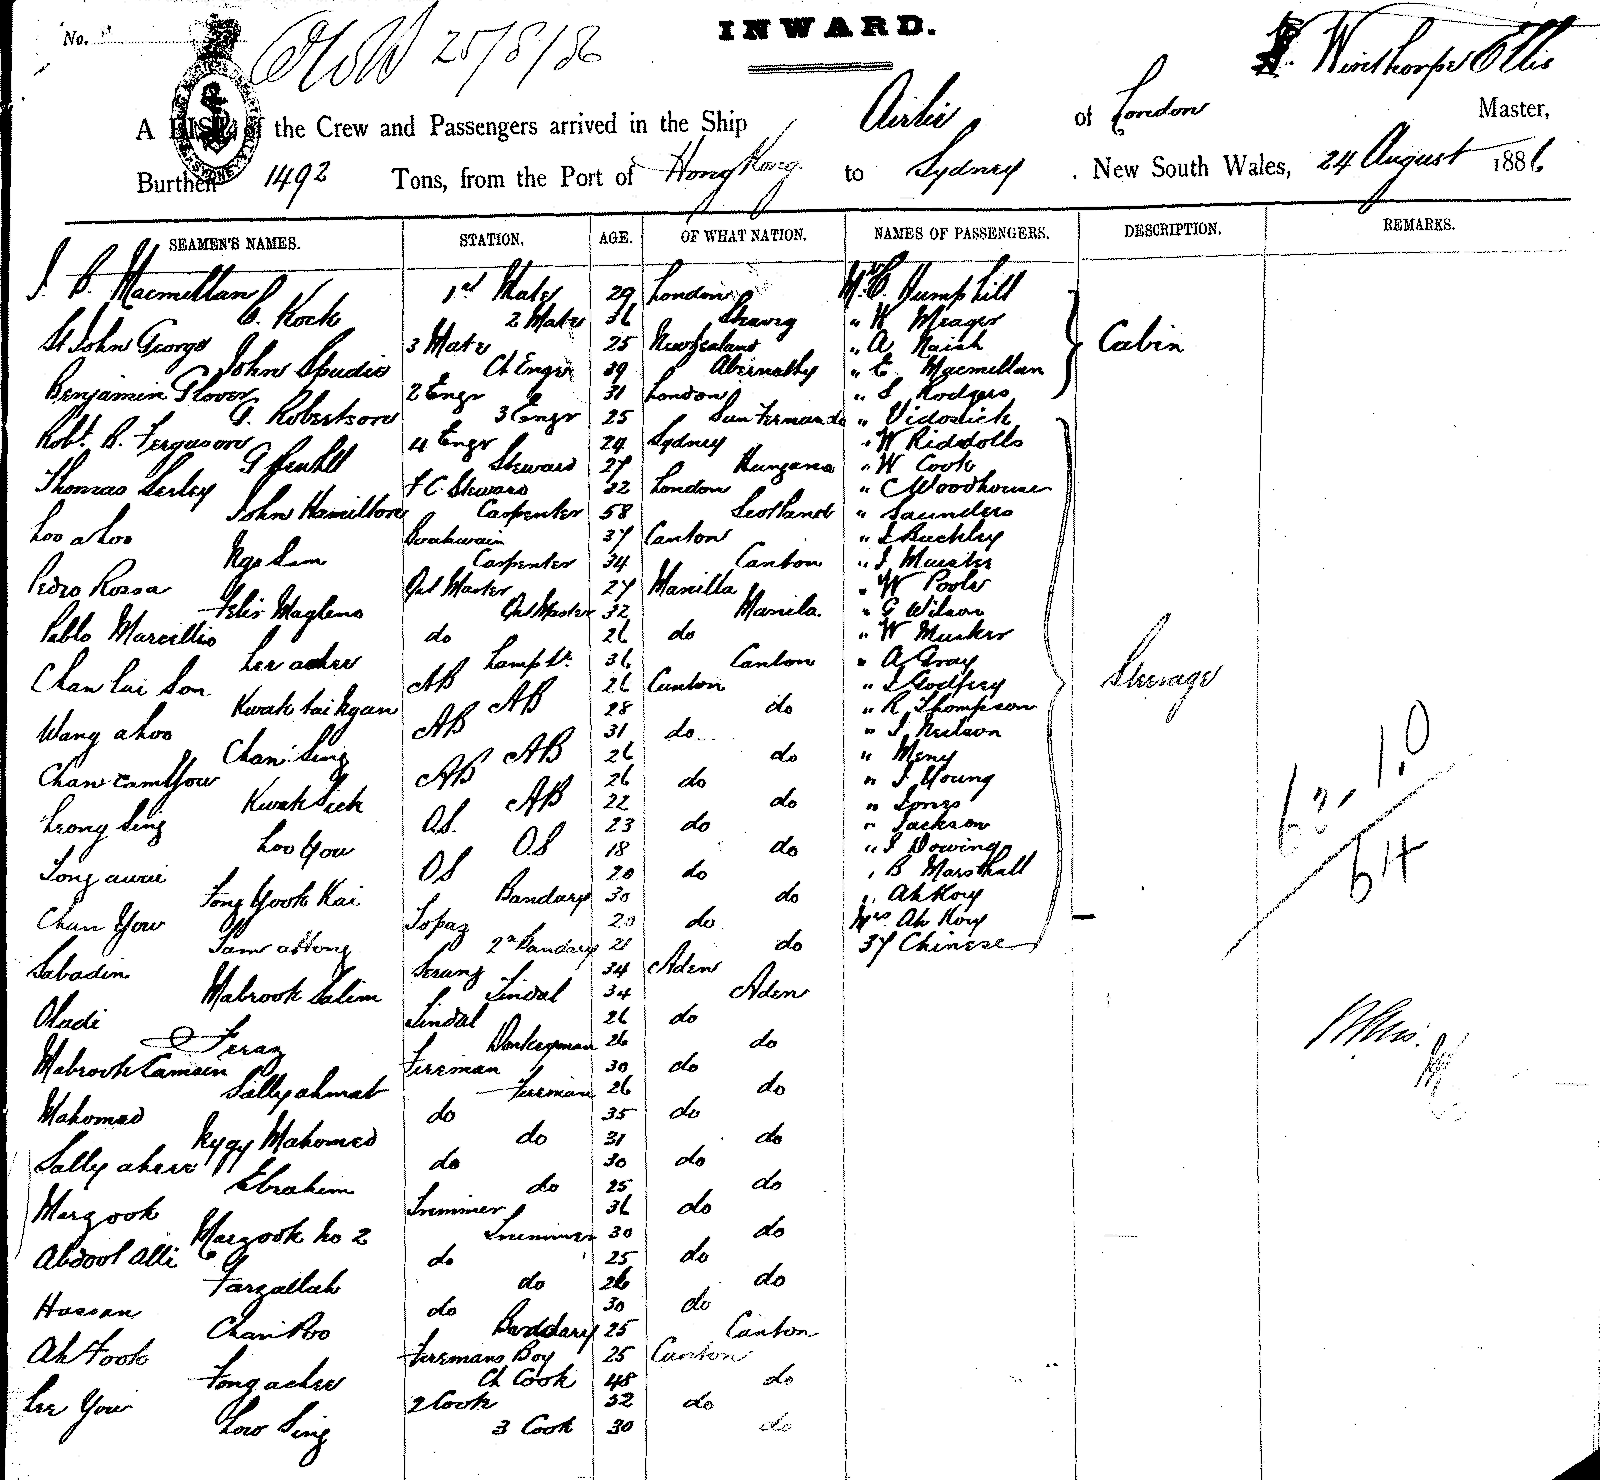 No.
25/8/86
INWARD.
W. Winthorpe Ellis
A LIST of the Crew and Passengers arrived in the Ship Airlie of London Master,
Burthen 1492 Tons, from the Port of Hong Kong to Sydney . New South Wales, 24 August 1886
SEAMEN'S NAMES. STATION. AGE. OF WHAT NATION. NAMES OF PASSENGERS. DESCRIPTION. REMARKS.
Macmillan 1st Mate 29 London Hemphill
C. Kock 2 Mate 36 " W Meager
St John George 3 Mate 25 New Zealand " A Naish Cabin
John Spudie Ch Engr 39 Abernathy " E. Macmillan
Benjamin Glover 2 Engr 31 London " S Rodgers
G. Robertson 3 Engr 25 San Fernando "
Robt. B. Ferguson 4 Engr 29 Sydney " W Riddolls
G Steward 27 " W Cook
Thomas Serley F C Steward 32 London " C Woodhouse
John Hamilton Carpenter 58 Scotland " Saunders
Loo a Loo 37 Canton " Buckley
Nge Sam Carpenter 34 Canton "
Pedro Rossa Qr Master 27 Manilla " W Poole
Felix Qr Master 32 Manila. " G Wilson
Pablo Marcellio do 26 do " W Musker
Lee achee Lamp Tr. 36 Canton " A Gray
Chan Lui Son AB 26 Canton " Godfrey Steerage
Kwak tai kgan AB 28 do " R Thompson
Wang a hoo AB 31 do " Neilson
Chan Sing AB 26 do " Meny
Chan Cam Yow AB 26 do " Young
Kwok Sick AB 22 do " Jones
Leong Sing O.S. 23 do " Jackson
Loo You O.S 18 do " Dowing
Tong OS 20 do " B Marshall
Fong Yook Kai Bandary 30 do " Ah Kory
Chun Yow Topaz 20 do Mrs Ah Kory
Sam 2nd Bandary 21 do 37 Chinese
Sabadin Serang 34 Aden
Mabrook Salim Tindal 34 Aden
Oladi Tindal 26 do
Feraz Donkeyman 26 do
Mabrook Camsen Fireman 30 do
Sally ahmat Fireman 26 do
Mahomed do 35 do
Mahomed do 31 do
Sally do 30 do
Ebrahim do 25 do
Margook Trimmer 36 do
Margook No 2 Trimmer 30 do
Abdool Alli do 25 do
Farzallah do 26 do
Hassan do 30 do
Chan Poo Bandary 25 Canton
Ah Fook Firemans Boy 25 Canton
Fong achee Ch Cook 48 do
Lee You 2 Cook 32 do
Low Sing 3 Cook 30 do
64